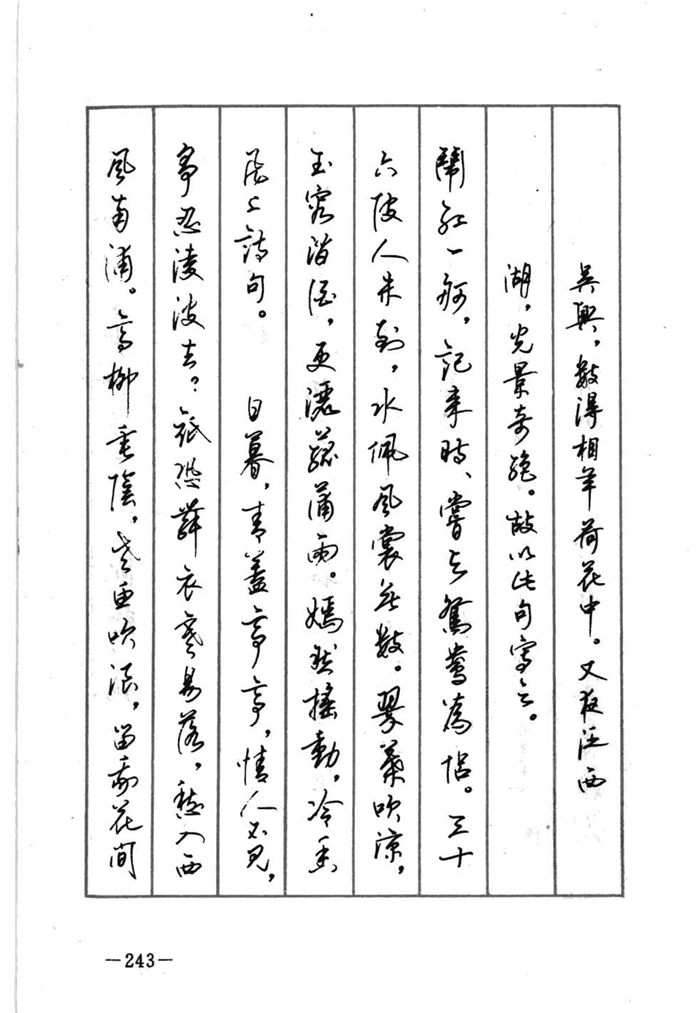 吳興，數得相羊荷花中。又夜泛西
湖，光景奇絶。故以此句寫之。
鬧紅一舸，記來時、嘗與鴛鴦為侶。三十
六陂人未到，水佩風裳無數。翠葉吹涼，
玉容消酒，更灑菰蒲雨。嫣然搖動，冷香
飛上詩句。　日暮，青蓋亭亭，情人不見，
爭忍淩波去？衹恐舞衣寒易落，愁入西
風南浦。高柳垂陰，老魚吹浪，留我花間
—243—